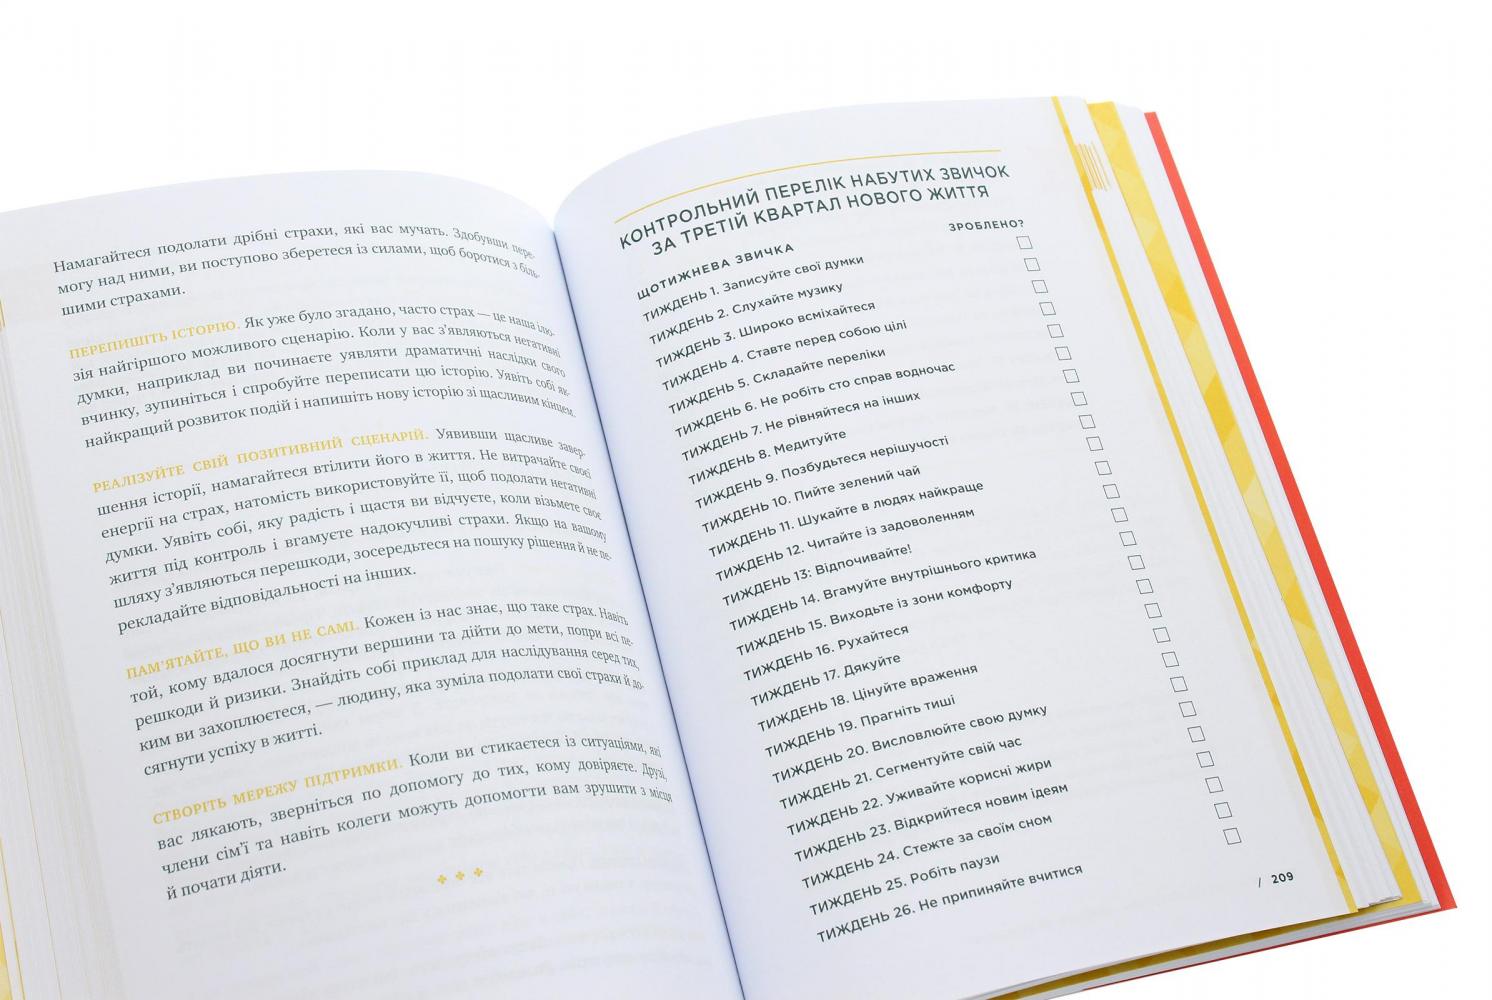 Намагайтеся подолати дрібні страхи, які вас мучать. Здобувши пере-
могу над ними, ви поступово зберетеся із силами, щоб боротися з біль-
шими страхами.
ПЕРЕПИШІТЬ ІСТОРІЮ. Як уже було згадано, часто страх — це наша ілю-
зія найгіршого можливого сценарію. Коли у вас з’являються негативні
думки, наприклад ви починаєте уявляти драматичні наслідки свого
вчинку, зупиніться і спробуйте переписати цю історію. Уявіть собі як-
найкращий розвиток подій і напишіть нову історію зі щасливим кінцем.
РЕАЛІЗУЙТЕ СВІЙ ПОЗИТИВНИЙ СЦЕНАРІЙ. Уявивши щасливе завер-
шення історії, намагайтеся втілити його в життя. Не витрачайте своєї
енергії на страх, натомість використовуйте її, щоб подолати негативні
думки. Уявіть собі, яку радість і щастя ви відчуєте, коли візьмете своє
життя під контроль і вгамуєте надокучливі страхи. Якщо на вашому
шляху з’являються перешкоди, зосередьтеся на пошуку рішення й не пе-
рекладайте відповідальності на інших.
ПАМ’ЯТАЙТЕ, ЩО ВИ НЕ САМІ. Кожен із нас знає, що таке страх. Навіть
той, кому вдалося досягнути вершини та дійти до мети, попри всі пе-
решкоди й ризики. Знайдіть собі приклад для наслідування серед тих,
ким ви захоплюєтеся, — людину, яка зуміла подолати свої страхи й до-
сягнути успіху в житті.
СТВОРІТЬ МЕРЕЖУ ПІДТРИМКИ. Коли ви стикаєтеся із ситуаціями, які
вас лякають, зверніться по допомогу до тих, кому довіряєте. Друзі,
члени сім’ї та навіть колеги можуть допомогти вам зрушити з місця
й почати діяти.
КОНТРОЛЬНИЙ ПЕРЕЛІК НАБУТИХ ЗВИЧОК
ЗА ТРЕТІЙ КВАРТАЛ НОВОГО ЖИТТЯ
ЩОТИЖНЕВА ЗВИЧКА ЗРОБЛЕНО?
ТИЖДЕНЬ 1. Записуйте свої думки
ТИЖДЕНЬ 2. Слухайте музику
ТИЖДЕНЬ 3. Широко всміхайтеся
ТИЖДЕНЬ 4. Ставте перед собою цілі
ТИЖДЕНЬ 5. Складайте переліки
ТИЖДЕНЬ 6. Не робіть сто справ водночас
ТИЖДЕНЬ 7. Не рівняйтеся на інших
ТИЖДЕНЬ 8. Медитуйте
ТИЖДЕНЬ 9. Позбудьтеся нерішучості
ТИЖДЕНЬ 10. Пийте зелений чай
ТИЖДЕНЬ 11. Шукайте в людях найкраще
ТИЖДЕНЬ 12. Читайте із задоволенням
ТИЖДЕНЬ 13: Відпочивайте!
ТИЖДЕНЬ 14. Вгамуйте внутрішнього критика
ТИЖДЕНЬ 15. Виходьте із зони комфорту
ТИЖДЕНЬ 16. Рухайтеся
ТИЖДЕНЬ 17. Дякуйте
ТИЖДЕНЬ 18. Цінуйте враження
ТИЖДЕНЬ 19. Прагніть тиші
ТИЖДЕНЬ 20. Висловлюйте свою думку
ТИЖДЕНЬ 21. Сегментуйте свій час
ТИЖДЕНЬ 22. Уживайте корисні жири
ТИЖДЕНЬ 23. Відкрийтеся новим ідеям
ТИЖДЕНЬ 24. Стежте за своїм сном
ТИЖДЕНЬ 25. Робіть паузи
ТИЖДЕНЬ 26. Не припиняйте вчитися
/ 209